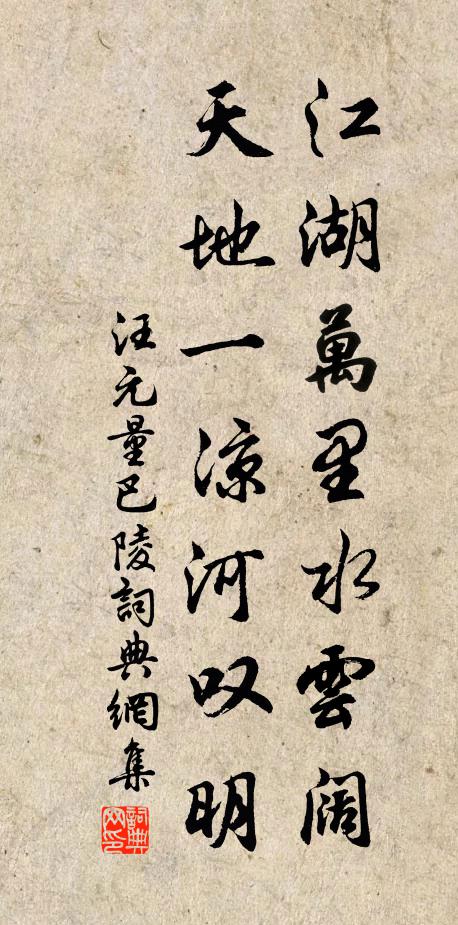 江湖萬里水雲闊
天地一涼河叹明
汪元量巴陵詞典網集
詞典网印